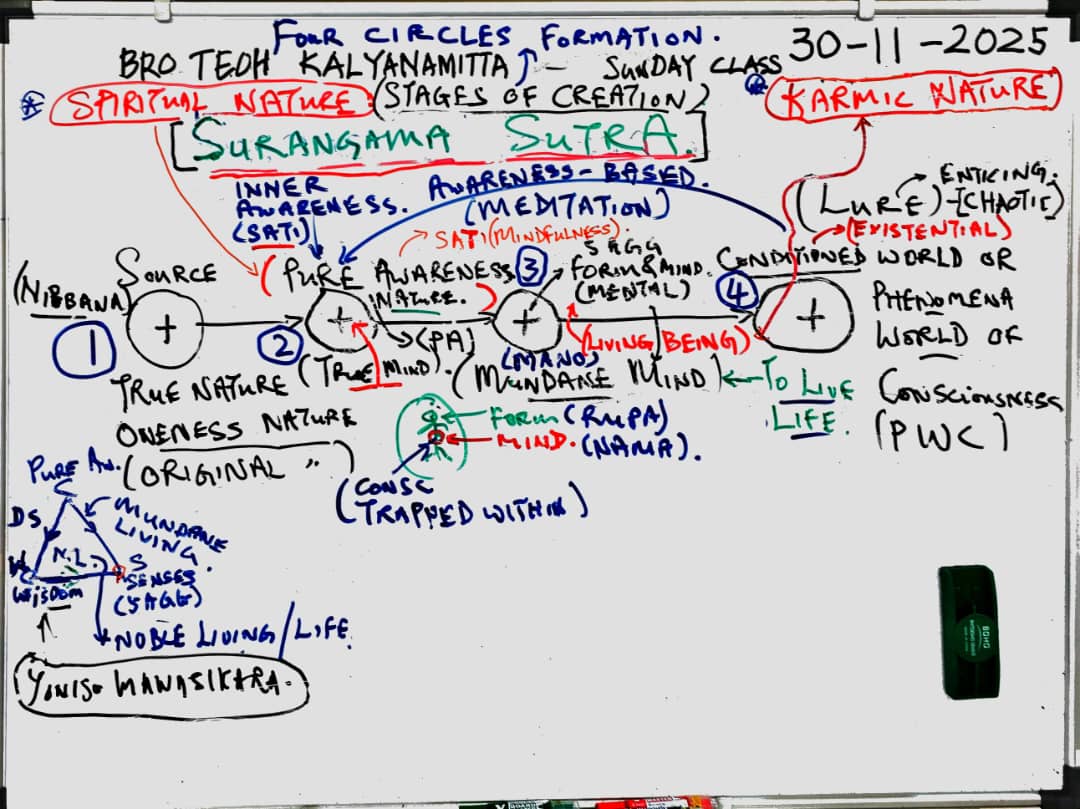 FOUR CIRCLES FORMATION.
30-11-2025
BRO TEOH KALYANAMITTA ↑ - SUNDAY CLASS
* SPIRITUAL NATURE (STAGES OF CREATION)
* KARMIC NATURE
[SURANGAMA SUTRA.]
INNER AWARENESS. (SATI)
AWARENESS-BASED.
(MEDITATION)
→ SATI (MINDFULNESS).
(LURE)-[CHAOTIC]
→ ENTICING.
→ (EXISTENTIAL)
(NIBBANA)
SOURCE
(PURE AWARENESS
NATURE. )
5 AGG
FORM & MIND.
(MENTAL)
CONDITIONED WORLD OR
PHENOMENA
WORLD OF
CONSCIOUSNESS
(PWC)
1
+
2
+
→ (PA)
3
+
4
+
(LIVING BEING)
TRUE NATURE
ONENESS NATURE
(ORIGINAL ")
(TRUE MIND).
(MANO)
(MUNDANE MIND) ← TO LIVE
LIFE.
← FORM (RUPA)
← MIND. (NAMA).
(CONSC
TRAPPED WITHIN)
PURE AW.
C
DS
MUNDANE
LIVING.
N.L.
W
S
SENSES
(5 AGG)
WISDOM
↑
NOBLE LIVING/LIFE.
YONISO MANASIKARA.